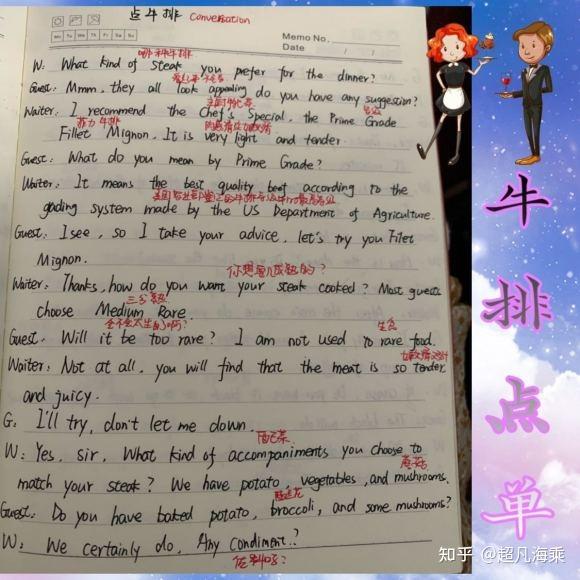 点牛排 Conversation
Memo No.
Mo Tu We Th Fr Sa Su
Date / /
哪种牛排
W: What kind of steak you prefer for the dinner?
Guest: Mmm, they all look appealing do you have any suggestion?
主厨特色菜
Waiter: I recommend the Chef's Special, the Prime Grade
菲力牛排
Fillet Mignon. It is very light and tender
Guest: What do you mean by Prime Grade?
Waiter: It means the best quality beef according to the
grading system made by the US Department of Agriculture.
Guest: I see, so I take your advice, let's try you Filet
Mignon.
你想要几成熟的?
Waiter: Thanks, how do you want your steak cooked? Most guests
三分熟
choose Medium Rare.
会不会太生了啊?
生食
Guest: Will it be too rare? I am not used to rare food.
Waiter: Not at all, you will find that the meat is so tender
and juicy.
G: I'll try, don't let me down.
配菜
W: Yes, sir, What kind of accompaniments you choose to
蘑菇
match your steak? We have potato, vegetables, and mushrooms.
西兰花
Guest: Do you have baked potato, broccoli, and some mushrooms?
W: We certainly do, Any Condiment?
佐料吗?
牛排点单
知乎 @超凡海乘